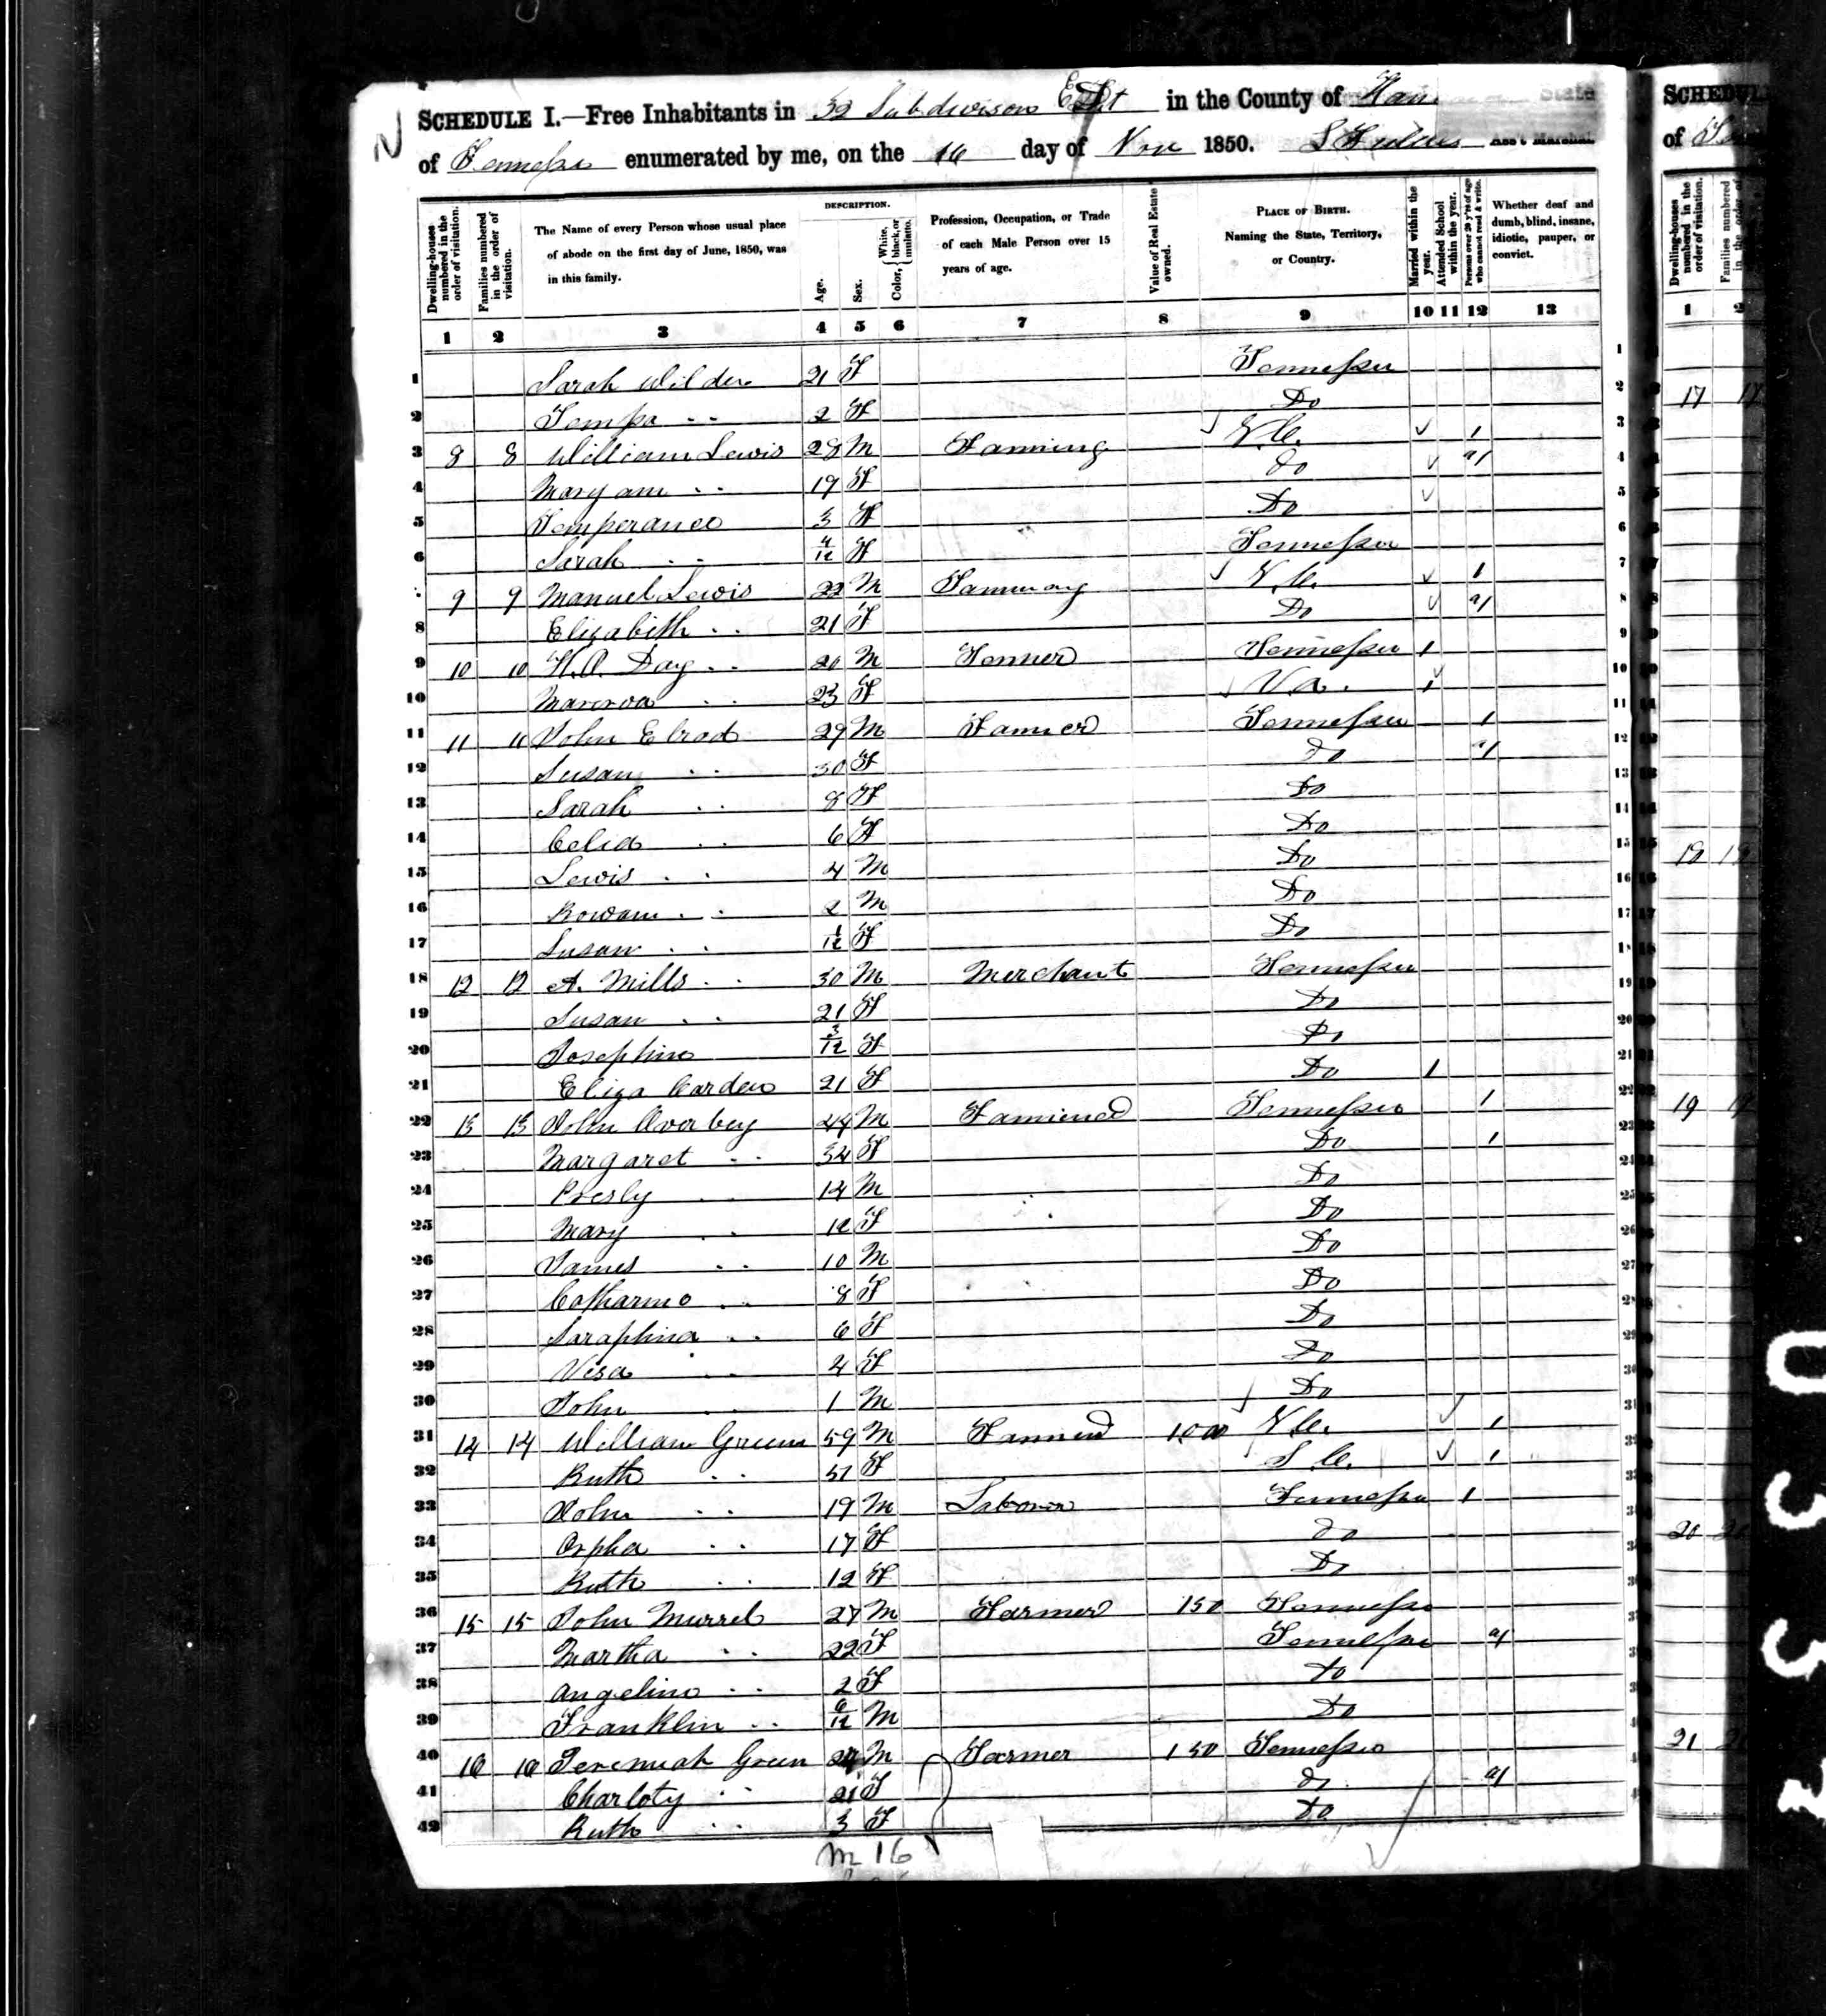 SCHEDULE I.—Free Inhabitants in 32 Subdivison E Dt in the County of Han State
of Tennessee enumerated by me, on the 16 day of Nov 1850. Ass't Marshal.
Dwelling-houses numbered in the order of visitation.
Families numbered in the order of visitation.
The Name of every Person whose usual place of abode on the first day of June, 1850, was in this family.
DESCRIPTION.
Age.
Sex.
Color, { White, black, or mulatto.
Profession, Occupation, or Trade of each Male Person over 15 years of age.
Value of Real Estate owned.
PLACE OF BIRTH. Naming the State, Territory, or Country.
Married within the year.
Attended School within the year.
Persons over 20 y'rs of age who cannot read & write.
Whether deaf and dumb, blind, insane, idiotic, pauper, or convict.
1 2 3 4 5 6 7 8 9 10 11 12 13
1 Sarah Wilder 21 F Tennessee
2 Tempa 2 F Do
3 8 8 William Lewis 28 M Farming N C. 1
4 Mary ann 19 F do
5 Temperance 3 F Do
6 Sarah 4/12 F Tennessee
9 9 Manuel Lewis 22 M Farming N. C. 1
8 Elizabeth 21 F Do
9 10 10 20 M Farmer Tennessee 1
10 23 F Va. 1
11 11 11 John Elrod 29 M Farmer Tennessee 1
12 Susan 30 F do
13 Sarah 8 F Do
14 Celia 6 F Do
15 Lewis 4 M Do
16 Rowan 2 M Do
17 Susan 1/12 F Do
18 12 12 A. Mills 30 M Merchant Tennessee
19 Susan 21 F Do
20 Josephine 3/12 F Do
21 Eliza Carden 21 F Do 1
22 13 13 John Overbey 44 M Farmer Tennessee 1
23 Margaret 34 F Do 1
24 Presly 14 M Do
25 Mary 12 F Do
26 James 10 M Do
27 Catharine 8 F Do
28 Saraphina 6 F Do
29 Visa 4 F Do
30 John 1 M Do
31 14 14 William Green 59 M Farmer 1,000 N C. 1
32 Ruth 51 F S C. 1
33 John 19 M Laborer Tennessee 1
34 Orpha 17 F do
35 Ruth 12 F Do
36 15 15 John Murrel 27 M Farmer 150 Tennessee
37 Martha 22 F Tennessee
38 Angeline 2 F Do
39 Franklin M Do
40 16 16 Jeremiah Green 24 M Farmer 150 Tennessee
41 Charloty 21 F do
42 Ruth 3 F Do
m 16